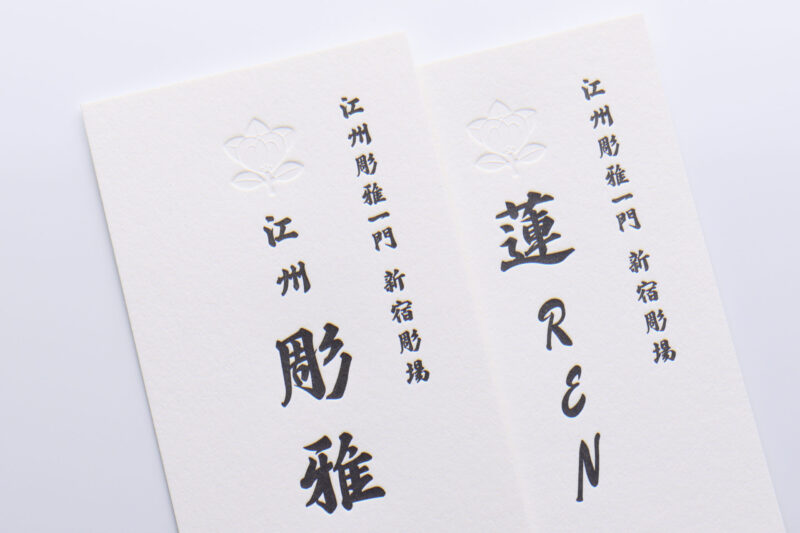 江州彫雅一門 新宿彫場
江州 彫雅
江州彫雅一門 新宿彫場
蓮 REN